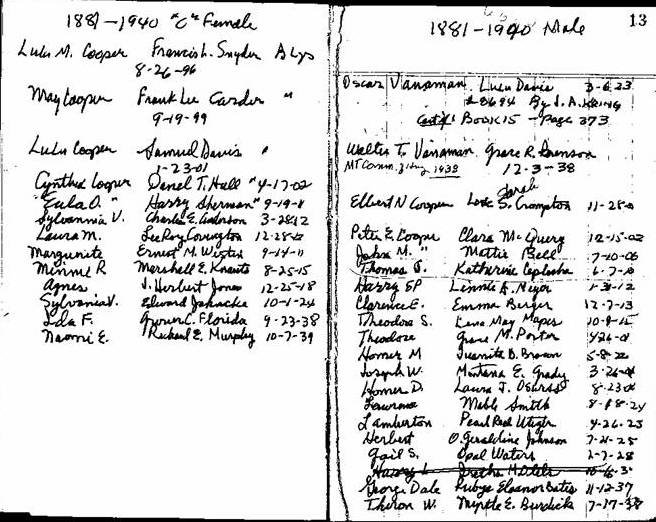 1881-1940 "C" Female
Lulu M. Cooper Francis L. Snyder
8-26-96
May Cooper Frank Lee Carder "
9-19-99
Lulu Cooper Samuel Davis "
1-23-01
Cynthia Cooper Daniel T. Hall "4-17-02
"Eula O. " Harry Sherman" 9-19-
Sylvannia V. Charles E. Anderson 3-28-12
Laura M. LeeRoy Covington 12-28-
Marguerite Ernest M. 9-14-11
Minnie R Marshall E. 8-25-15
Agnes J. Herbert Jones 12-25-18
Sylvania V. Edward 10-1-24
Ida F. C. Florida 9-23-38
Naomi E. Richard E. Murphy 10-7-39
13
1881-1940 Male
Oscar Vanaman Lulu Davis 3-6-23
#8694 By J. A.
Book 15 - Page 373
Walter T. Vanaman Grace R.
12-3-38
1938
Sarah
Elbert N Cooper S. Crampton 11-28-
Peter E Cooper Clara McQuery 12-15-02
John M. " Mattie Bell 7-10-06
Thomas J. Katherine 6-7-10
Harry EP Linnie A. 1-31-12
Clarence E. Emma Berger 12-7-13
Theodore S. Lena May Mapes 10-9-15
Theodore Grace M. Porter
Homer M Juanita B. Brown 5-8-
Joseph W. Montana E. Grady 3-26-
Homer D. Laura J. 8-23-
Lawrence Mable Smith 8-18-24
Lamberton Pearl 4-26-25
Herbert O. Geraldine Johnson 7-21-25
Gail S. Opal Waters 2-7-28
Harry L
George Dale Rubye Eleanor Bates 11-12-37
Theron W. Myrtle E. Burdick 7-17-38